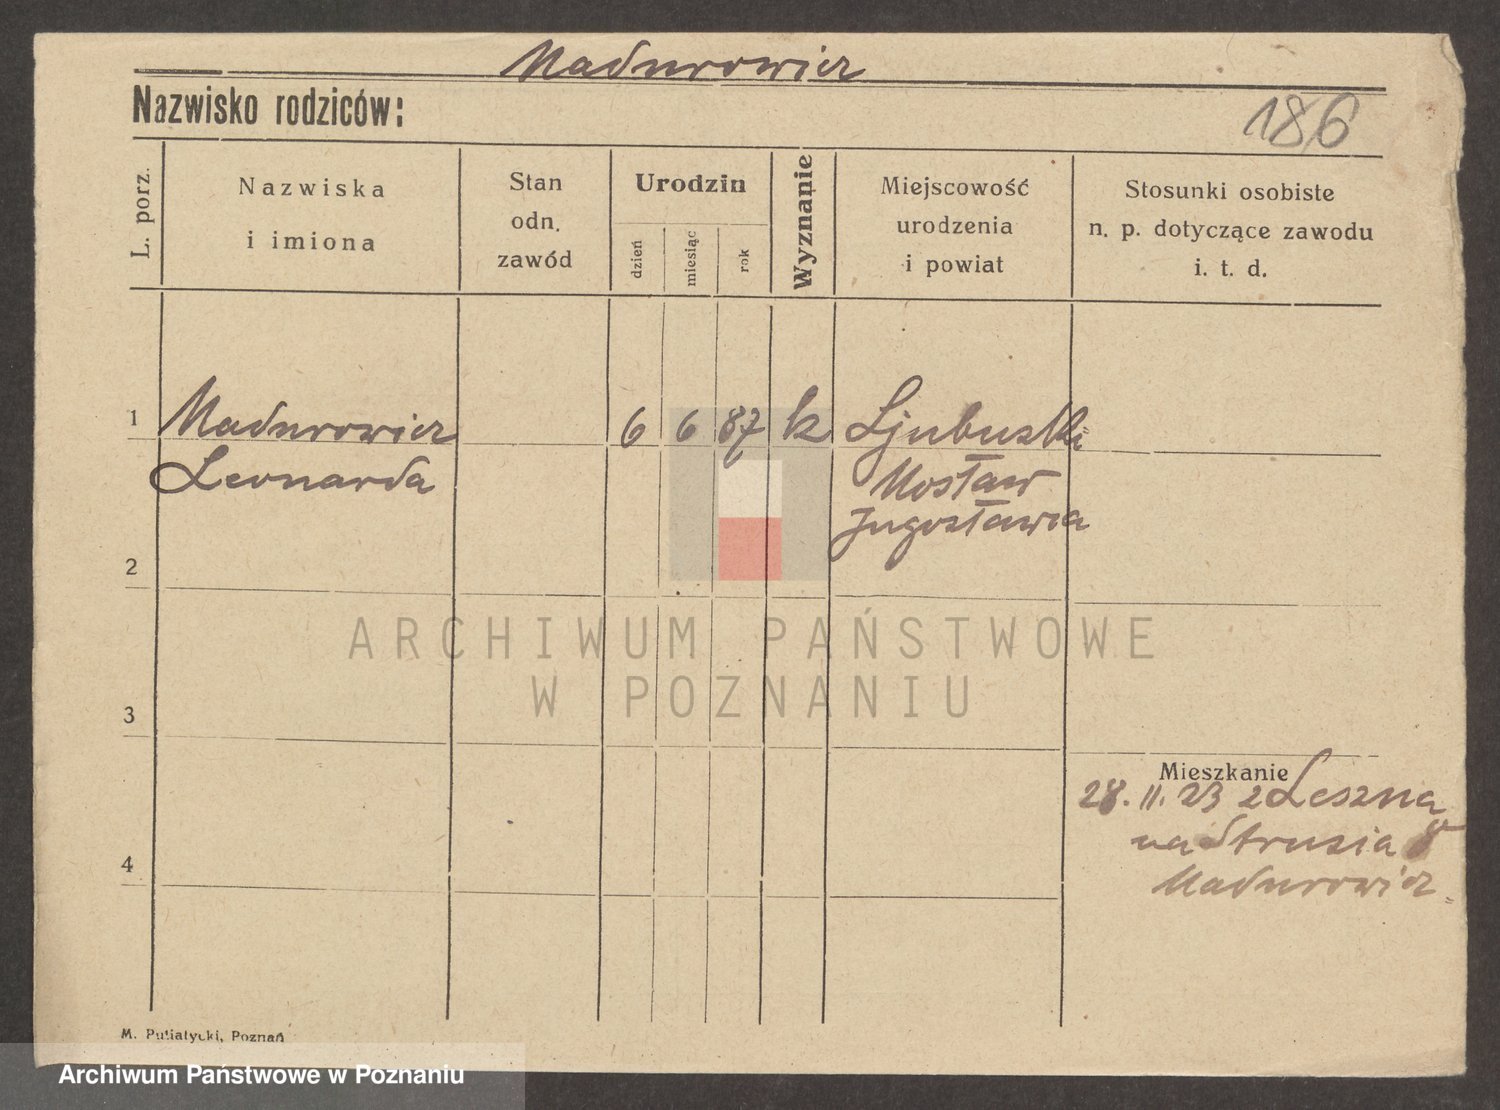 Madurowicz
Nazwisko rodziców:
186
L. porz.
Nazwiska
i imiona
Stan
odn.
zawód
Urodzin
dzień
miesiąc
rok
Wyznanie
Miejscowość
urodzenia
i powiat
Stosunki osobiste
n. p. dotyczące zawodu
i. t. d.
1 Madurowicz 6 6 87 k Ljubuszki
Leonarda Mostaw
Jugosławia
2
ARCHIWUM PAŃSTWOWE
W POZNANIU
3
Mieszkanie
28. II. 23 z Leszna
na Strusia 8
Madurowicz
4
M. Putiatycki, Poznań
Archiwum Państwowe w Poznaniu